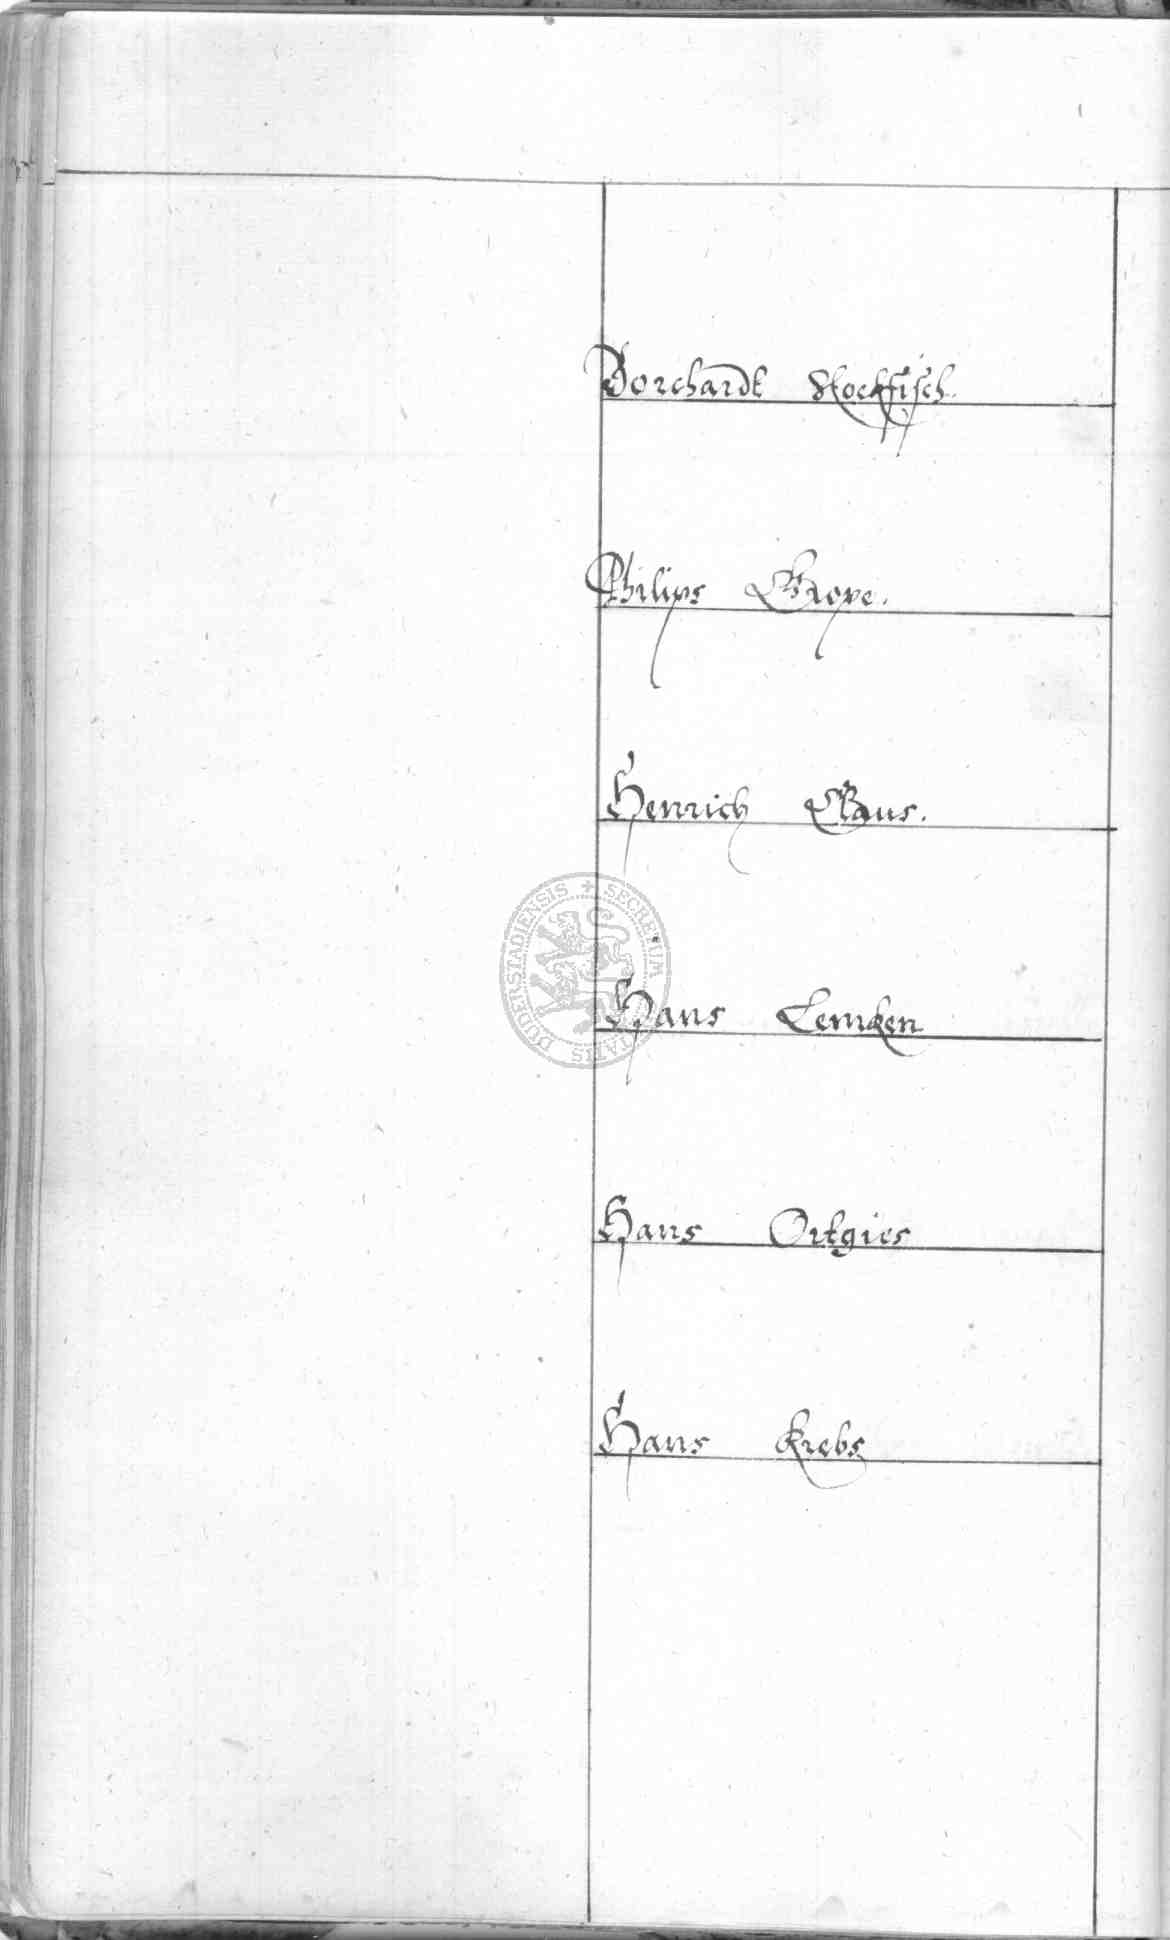 Borchardt Stockfisch.
Philips Grope.
Henrich Claus.
Hans Lemken
Hans Ortgies
Hans Krebs
SECRETUM
DUDERSTADIENSIS